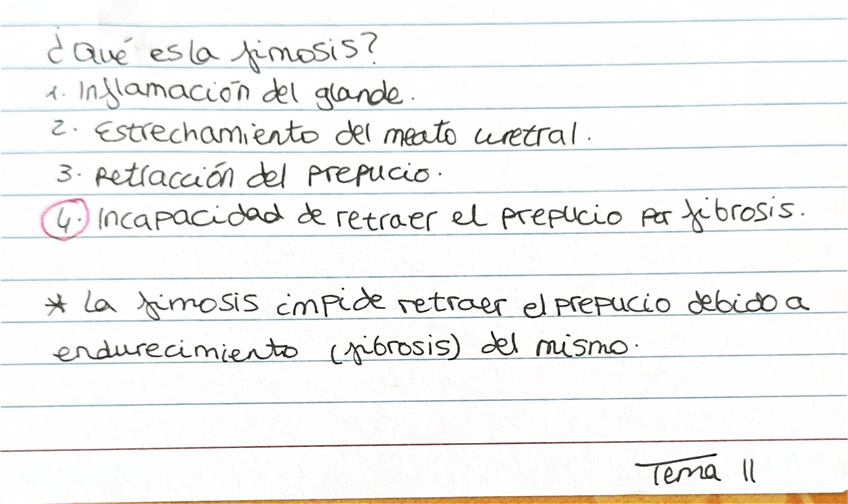 ¿Qué es la fimosis?
1. Inflamación del glande.
2. Estrechamiento del meato uretral.
3. Retracción del prepucio.
4. Incapacidad de retraer el prepucio por fibrosis.
* La fimosis impide retraer el prepucio debido a
endurecimiento (fibrosis) del mismo.
Tema 11